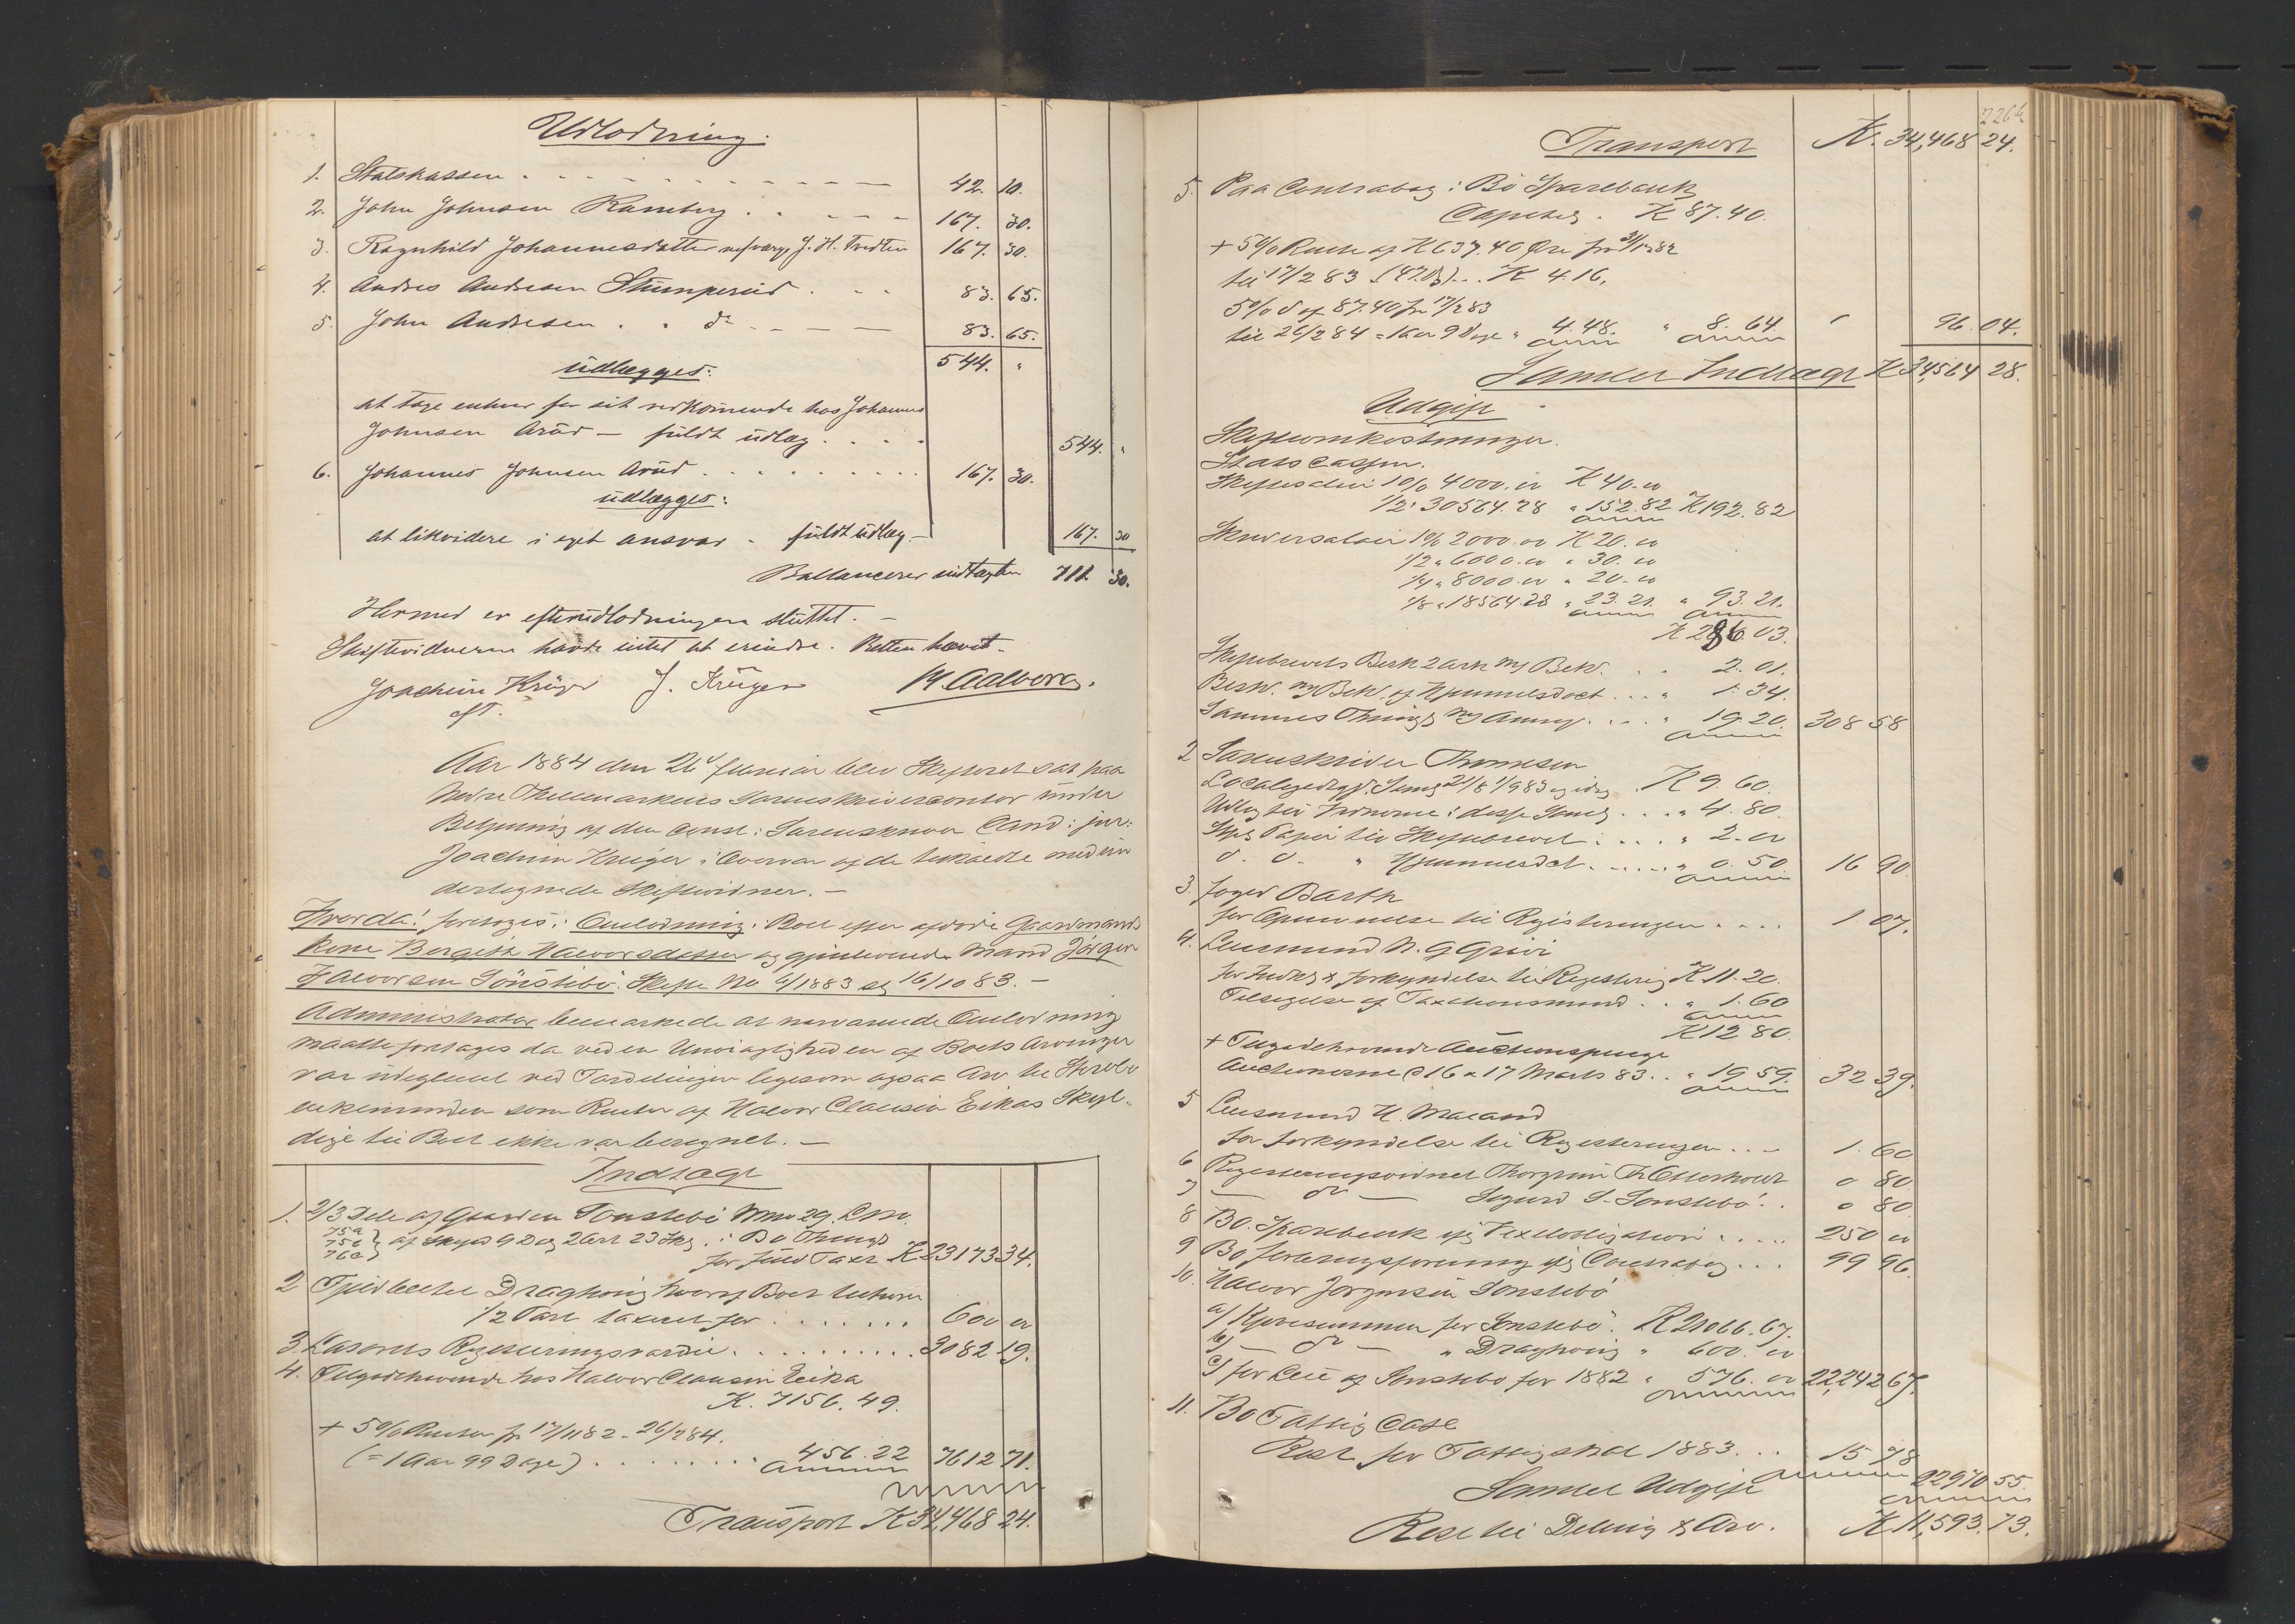 Udlodning.
1. Statskassen 42. 10.
2. John Johnsen Ramberg 167. 30.
3. Ragnhild Johannesdatter v/værge J. H. Tredten 167. 30.
4. Andres Andresen Stumperud 83. 65.
5. John Andresen do 83. 65.
544. "
udlægges:
at tage enhver for sit vedkommende hos Johannes
Johnsen Arud – fuldt udlæg 544. "
6. Johannes Johnsen Arud 167. 30.
udlægges:
at likvidere i eget ansvar – fuldt udlæg – 167. 30
Ballancerer indtægten 711. 30.
Hermed er efterudlodningen sluttet. –
Skiftevidnerne havde intet at erindre. Retten hævet –
Joachim Krüger J. Krüger M. Aalborg.
cst.
Aar 1884 den 26 februar blev Skifteret sat paa
Nedre Thelemarkens Sorenskrivercontor under
Betjening af den const: Sorenskriver Cand: jur:
Joachim Krüger i Overvær af de tilkaldte med un
dertegnede Skiftevidner. –
Hvorda! foretoges: Omlodning i Boet efter afdøde Gaardmands
kone Bergith Halvorsdatter og gjenlevende Mand Jørgen
Halvorsen Sönstebö. Skifte No 6/1883 og 16/10 83. –
Administrator bemærkede at nærværende Omlodning
maatte foretages da ved en Unøiagtighed en af Boets Arvinger
var udeglemt ved Fordelingen ligesom ogsaa Arv til Sterbo
enkemanden som Renter af Halvor Clausen Eikas Skyl-
dige til Boet ikke var beregnet. –
Indtægt
1. 2/3 Dele af Gaarden Sonstebö Mno 29. Lno
75a 75b 76a } af Skyld 9 Dlr 2 Ort 23 Skg. i Bö Thingl
for fuld Taxt K 23173 34.
2 Tjeldleethe Draghoug hvoraf Boet tilhører
1/2 Part taxeret for 600 "
3. Løsørets Registreringsværdie 3082 19.
4. Tilgodehavende hos Halvor Clausen Eeika
K. 7156. 49.
+ 5% Renter fr 17/11 82 – 26/2 84.
(= 1 Aar 99 Dage) 456. 22 7612 71.
Transport K 34,468 24.
226b
Transport K. 34,468 24.
5. Paa Contrabog i Bö Sparebank
Capital. K 87. 40.
+ 5% Rente af K 637. 40 Øre fra 31/12 82
til 17/2 83 (47 Dg) K 4. 16.
5% d af 87. 40 fra 17/2 83
til 26/2 84 = 1 Aar 9 Dage " 4. 48. " 8. 64. " 96. 04.
Samlet Indtægt K 34,564 28.
Udgift
Skifteomkostninger.
Stats Cassen.
Skiftesalair 1 0/0 4000. " K 40. "
1/2 " 30564. 28 " 152. 82 K 192. 82
Skriversalair 1% 2000. " K 20. "
1/2 " 6000. " " 30. "
1/4 " 8000. " " 20. "
1/8 " 18564. 28 " 23. 21. " 93. 21.
K 286. 03.
Skiftebrevets Besk 2 Ark m/ Bekr. 2. 01.
Beskr. m/ Bekr. af Hjemmelsdoct " 1. 34.
Sammes Thingl m/ Anmg. " 19. 20. 308 58
2 Sorenskriver Thomesen
Localgodtgj. Samlg 21/8 1/9 83 og idag K 9. 60.
Udlæg til Vidnerne i disse Saml " 4. 80.
Stpl Papir til Skiftebrevet " 2. "
d. d. " Hjemmelsdoct " 0. 50 16 90.
3. Foged Barth
for Opnævnelse til Registreringen 1. 07.
4. Lensmand N. G. Grivi
for Indkl & Forkyndelse til Registrerig K 11. 20.
Tilsigelse af Taxtionsmænd " 1. 60
K 12 80.
+ Tilgodehavende Auctionspenge
Auctionerne d 16 & 17 Marts 83 " 19 59. 32 39.
5 Lensmand H. Maeand
for Forkyndelse til Registreringen 1. 60
6 Registreringsvidnet Thorgrim Th Otterholt 0 80
7 – do – Sigurd S. Sonstebö 0 80.
8 Bö Sparebank iflg Vexelobligation 250 "
9 Bö Forbrugsforening iflg Contrabog 99 96.
10. Halvor Jörgensen Sonstebö
a/ Kjøbesummen for Sonstebö. K 21066. 67.
b/ – do – " Draghoug " 600. "
c/ for Leie af Sonstebo for 1882 " 576. " 22,242 67.
11. Bö Fattig Casse
Rest for Fattigskat 1883 15 78
Samlet Udgift 22970 55.
Rest til Deling & Arv. K 11,593. 73.